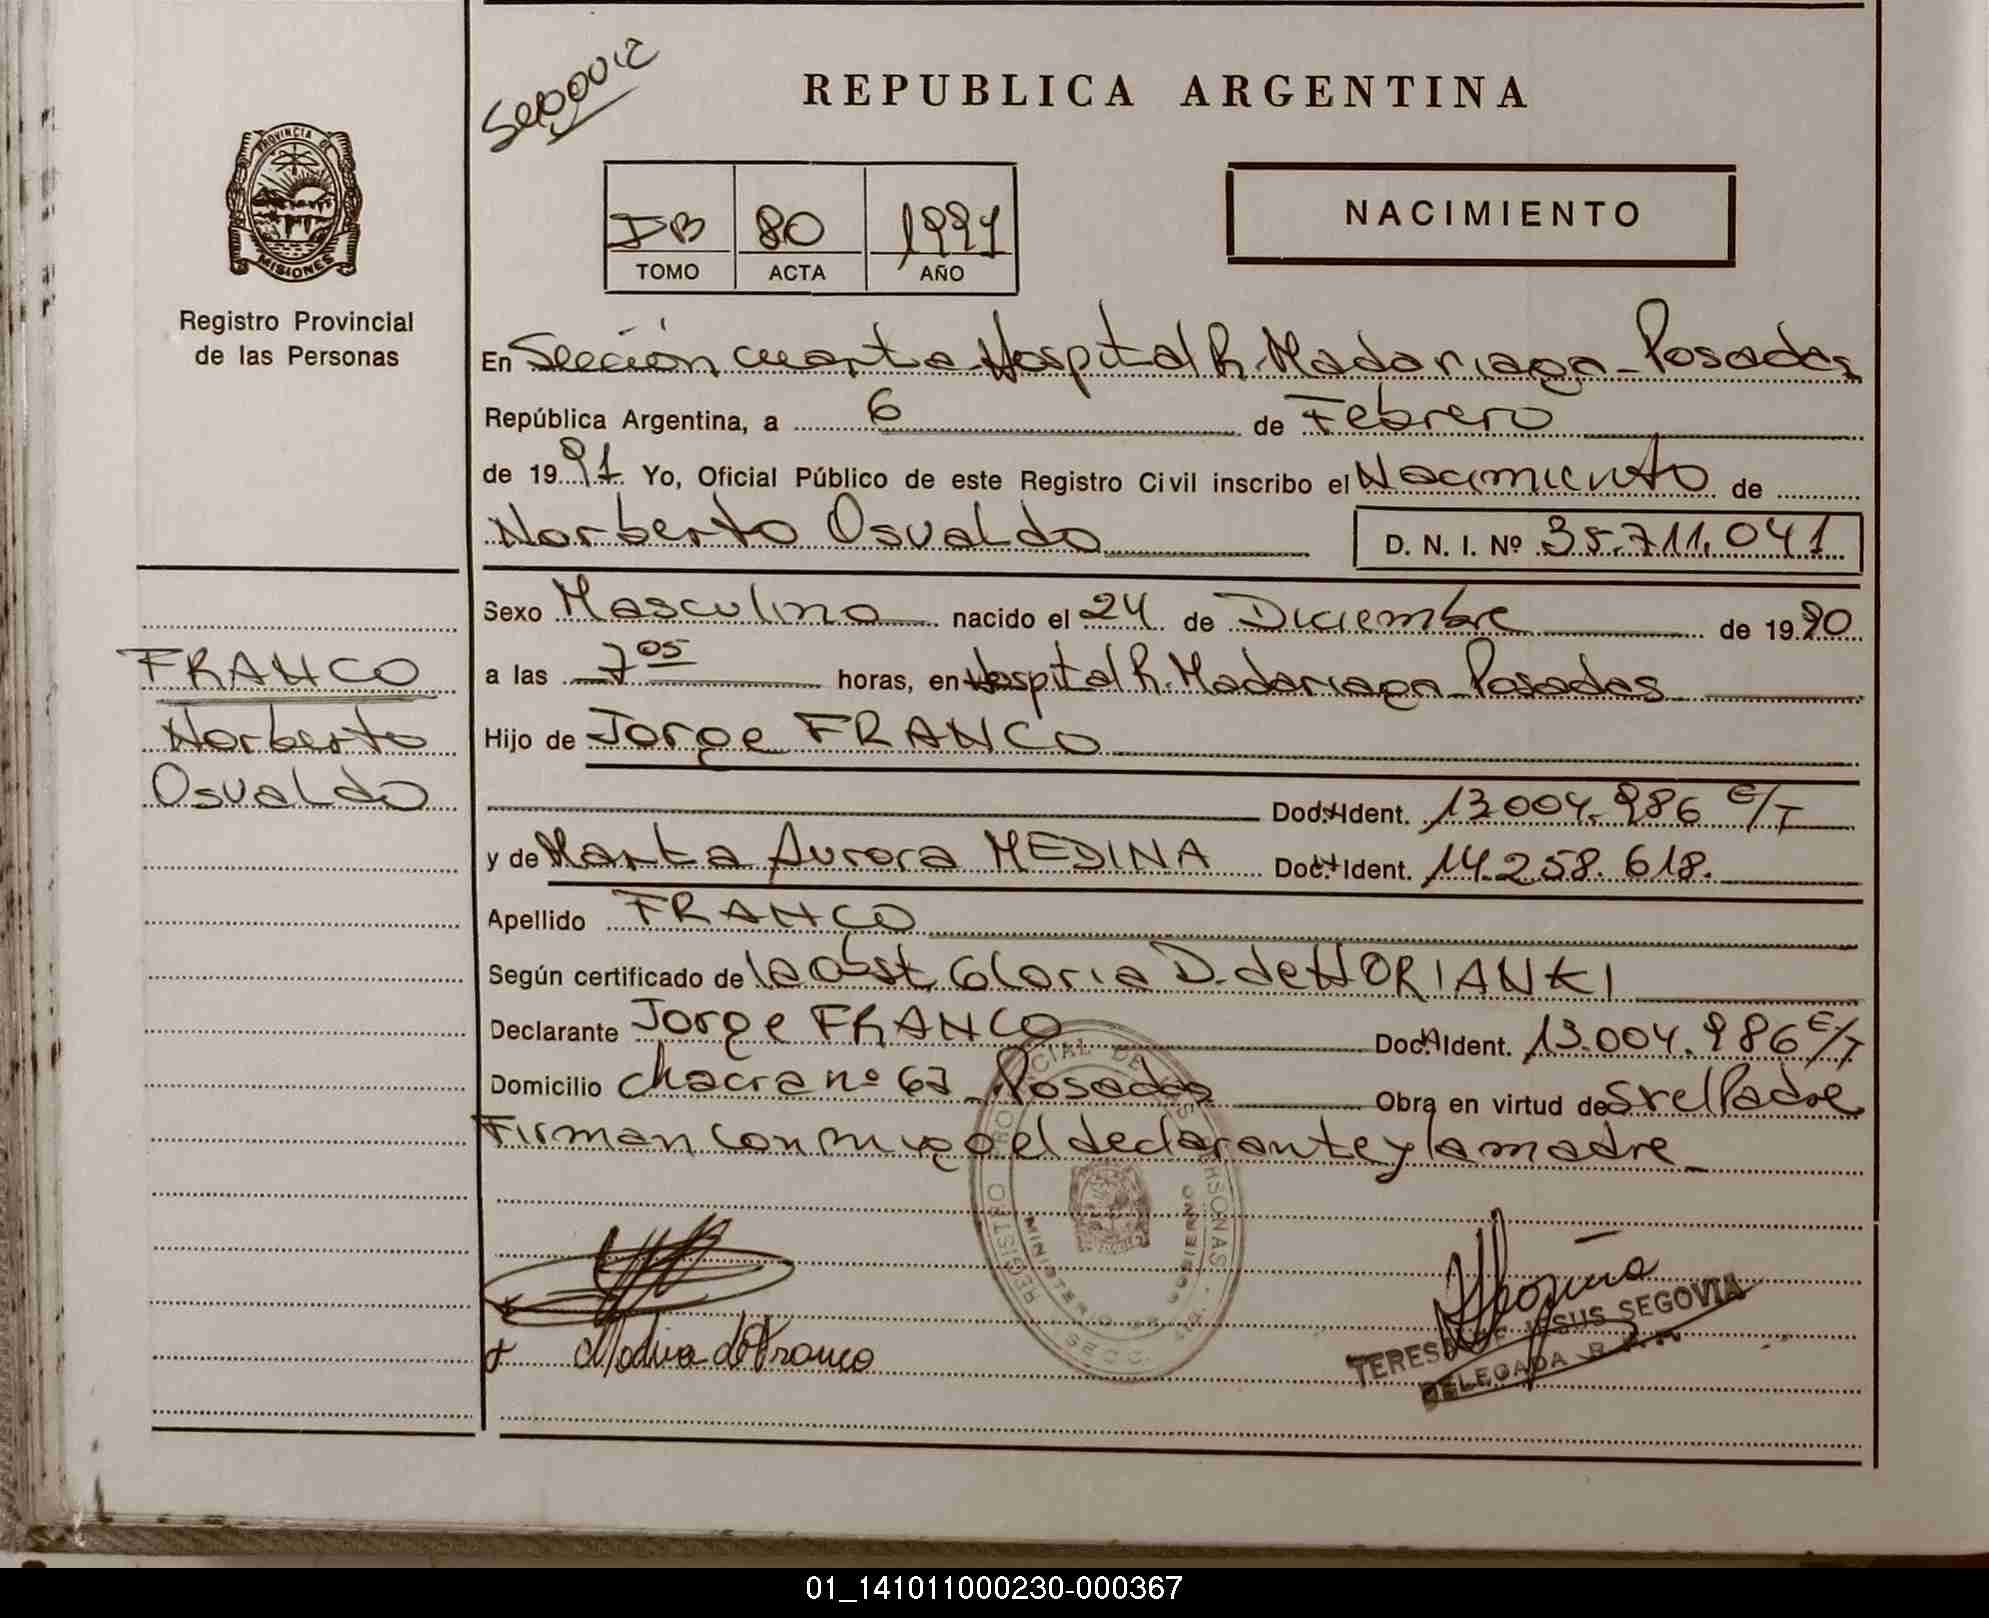 Segovia
REPUBLICA ARGENTINA
PROVINCIA DE
MISIONES
Registro Provincial
de las Personas
DB 80 1991
TOMO ACTA AÑO
NACIMIENTO
En Sección cuarta Hospital R. Madariaga - Posadas
República Argentina, a 6 de Febrero
de 1991 Yo, Oficial Público de este Registro Civil inscribo el Nacimiento de
Norberto Osvaldo D. N. I. Nº 35.711.041
Sexo Masculino nacido el 24 de Diciembre de 1990
FRANCO
Norberto
Osvaldo
a las 7 05 horas, en Hospital R. Madariaga Posadas
Hijo de Jorge FRANCO
Doc. Ident. 13.004.986 E/T
y de Marta Aurora MEDINA Doc. Ident. 14.258.618.
Apellido FRANCO
Según certificado de la obst. Gloria D. de HORIANKI
Declarante Jorge FRANCO Doc. Ident. 13.004.986 E/T
Domicilio Chacra nº 67 - Posadas Obra en virtud de Ser el Padre
Firman conmigo el declarante y la madre -
Medina de Franco
TERESA DE JESUS SEGOVIA
DELEGADA R.P.P.
01_141011000230-000367